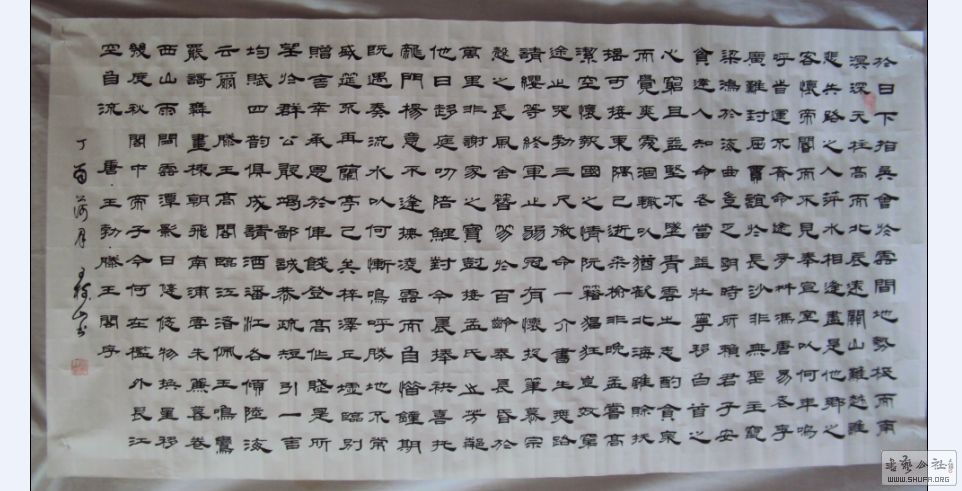 於日下指吳會於雲間地勢極而南
溟深天柱高而北辰遠關山難越誰
悲失路之人萍水相逢盡是他鄉之
客懷帝閽而不見奉宣室以何年嗚
呼時運不齊命途多舛馮唐易老李
廣難封屈賈誼於長沙非無聖主竄
梁鴻於海曲豈乏明時所賴君子安
貧達人知命老當益壯寧移白首之
心窮且益堅不墜青雲之志酌貪泉
而覺爽處涸轍以猶歡北海雖賒扶
搖可接東隅已逝桑榆非晚孟嘗高
潔空懷報國之情阮籍猖狂豈效窮
途之哭勃三尺微命一介書生無路
請纓等終軍之弱冠有懷投筆慕宗
愨之長風舍簪笏於百齡奉晨昏於
萬里非謝家之寶樹接孟氏之芳鄰
他日趨庭叨陪鯉對今晨捧袂喜托
龍門楊意不逢撫凌雲而自惜鍾期
既遇奏流水以何慚嗚呼勝地不常
盛筵不再蘭亭已矣梓澤丘墟臨別
贈言幸承恩於偉餞登高作賦是所
望於群公敢竭鄙誠恭疏短引一言
均賦四韻俱成請洒潘江各傾陸海
云爾 滕王高閣臨江渚佩玉鳴鸞
罷歌舞畫棟朝飛南浦雲朱簾暮卷
西山雨閒雲潭影日悠悠物換星移
幾度秋閣中帝子今何在檻外長江
空自流 唐·王勃·滕王閣序
丁酉荷月 書
書法公社
WWW.SHUFA.ORG